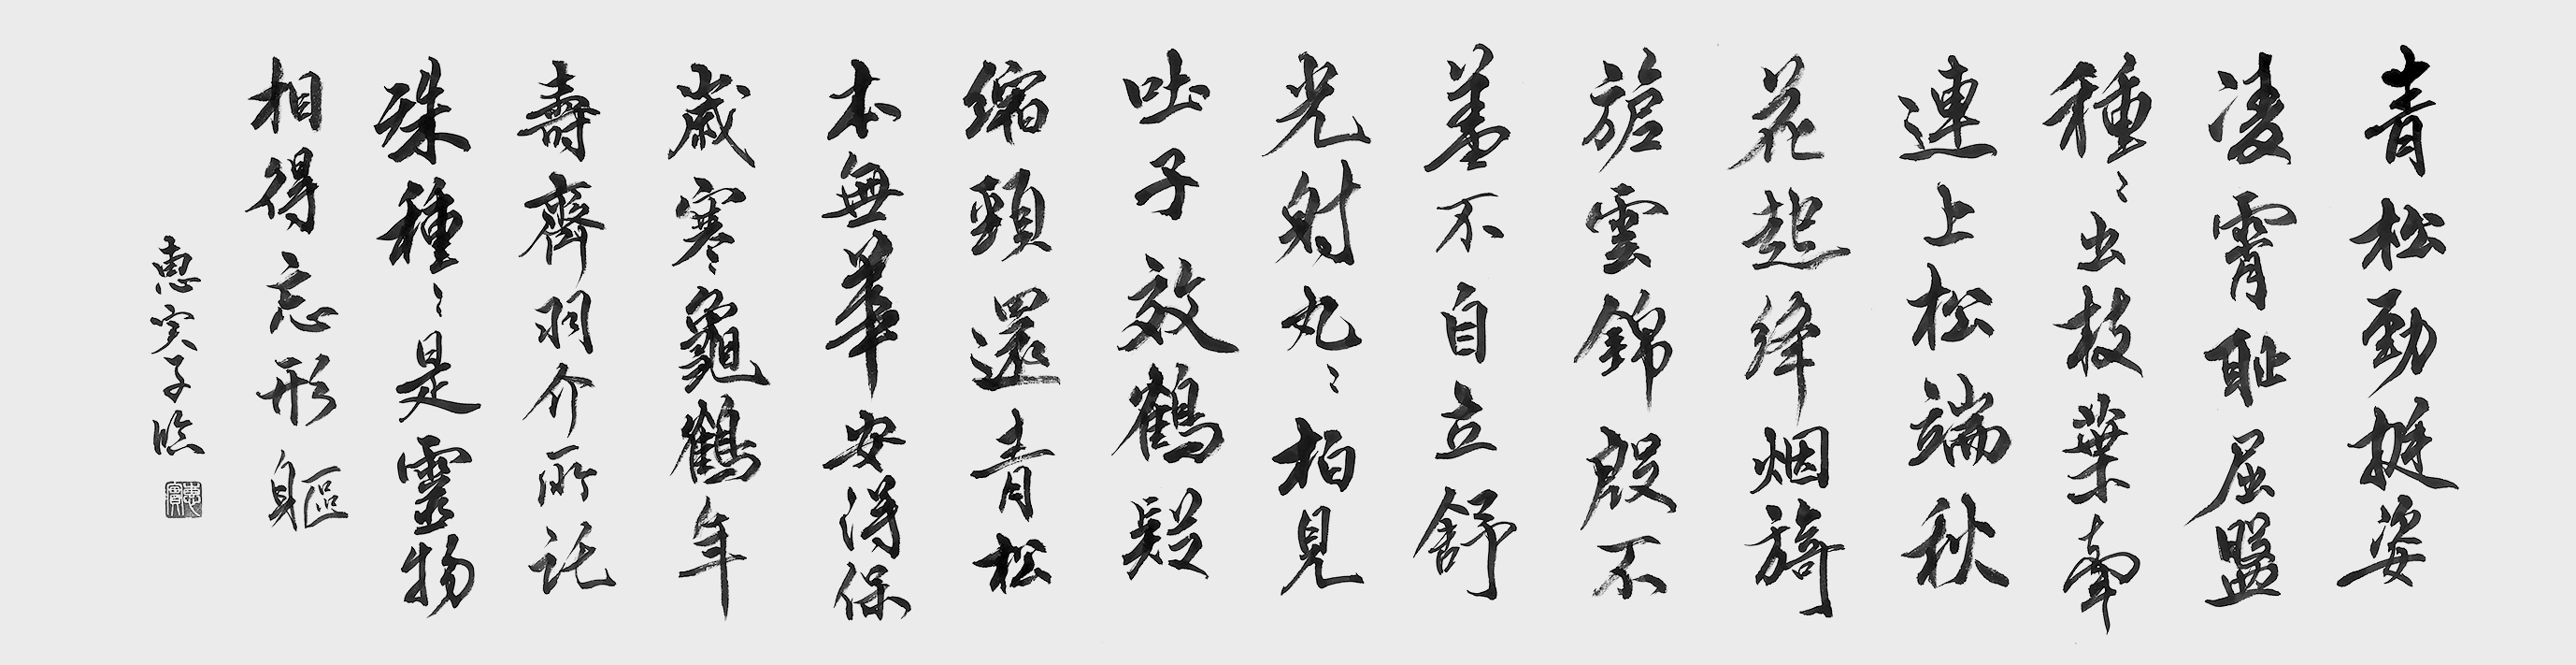 青松勁挺姿
凌霄恥屈盤
種〻出枝葉牽
連上松端秋
花起絳烟旖
旎雲錦殷不
羞不自立舒
光射丸〻柏見
吐子效鶴疑
縮頸還青松
本無華安得保
歲寒龜鶴年
壽齊羽介所託
殊種〻是靈物
相得忘形軀
惠实子臨